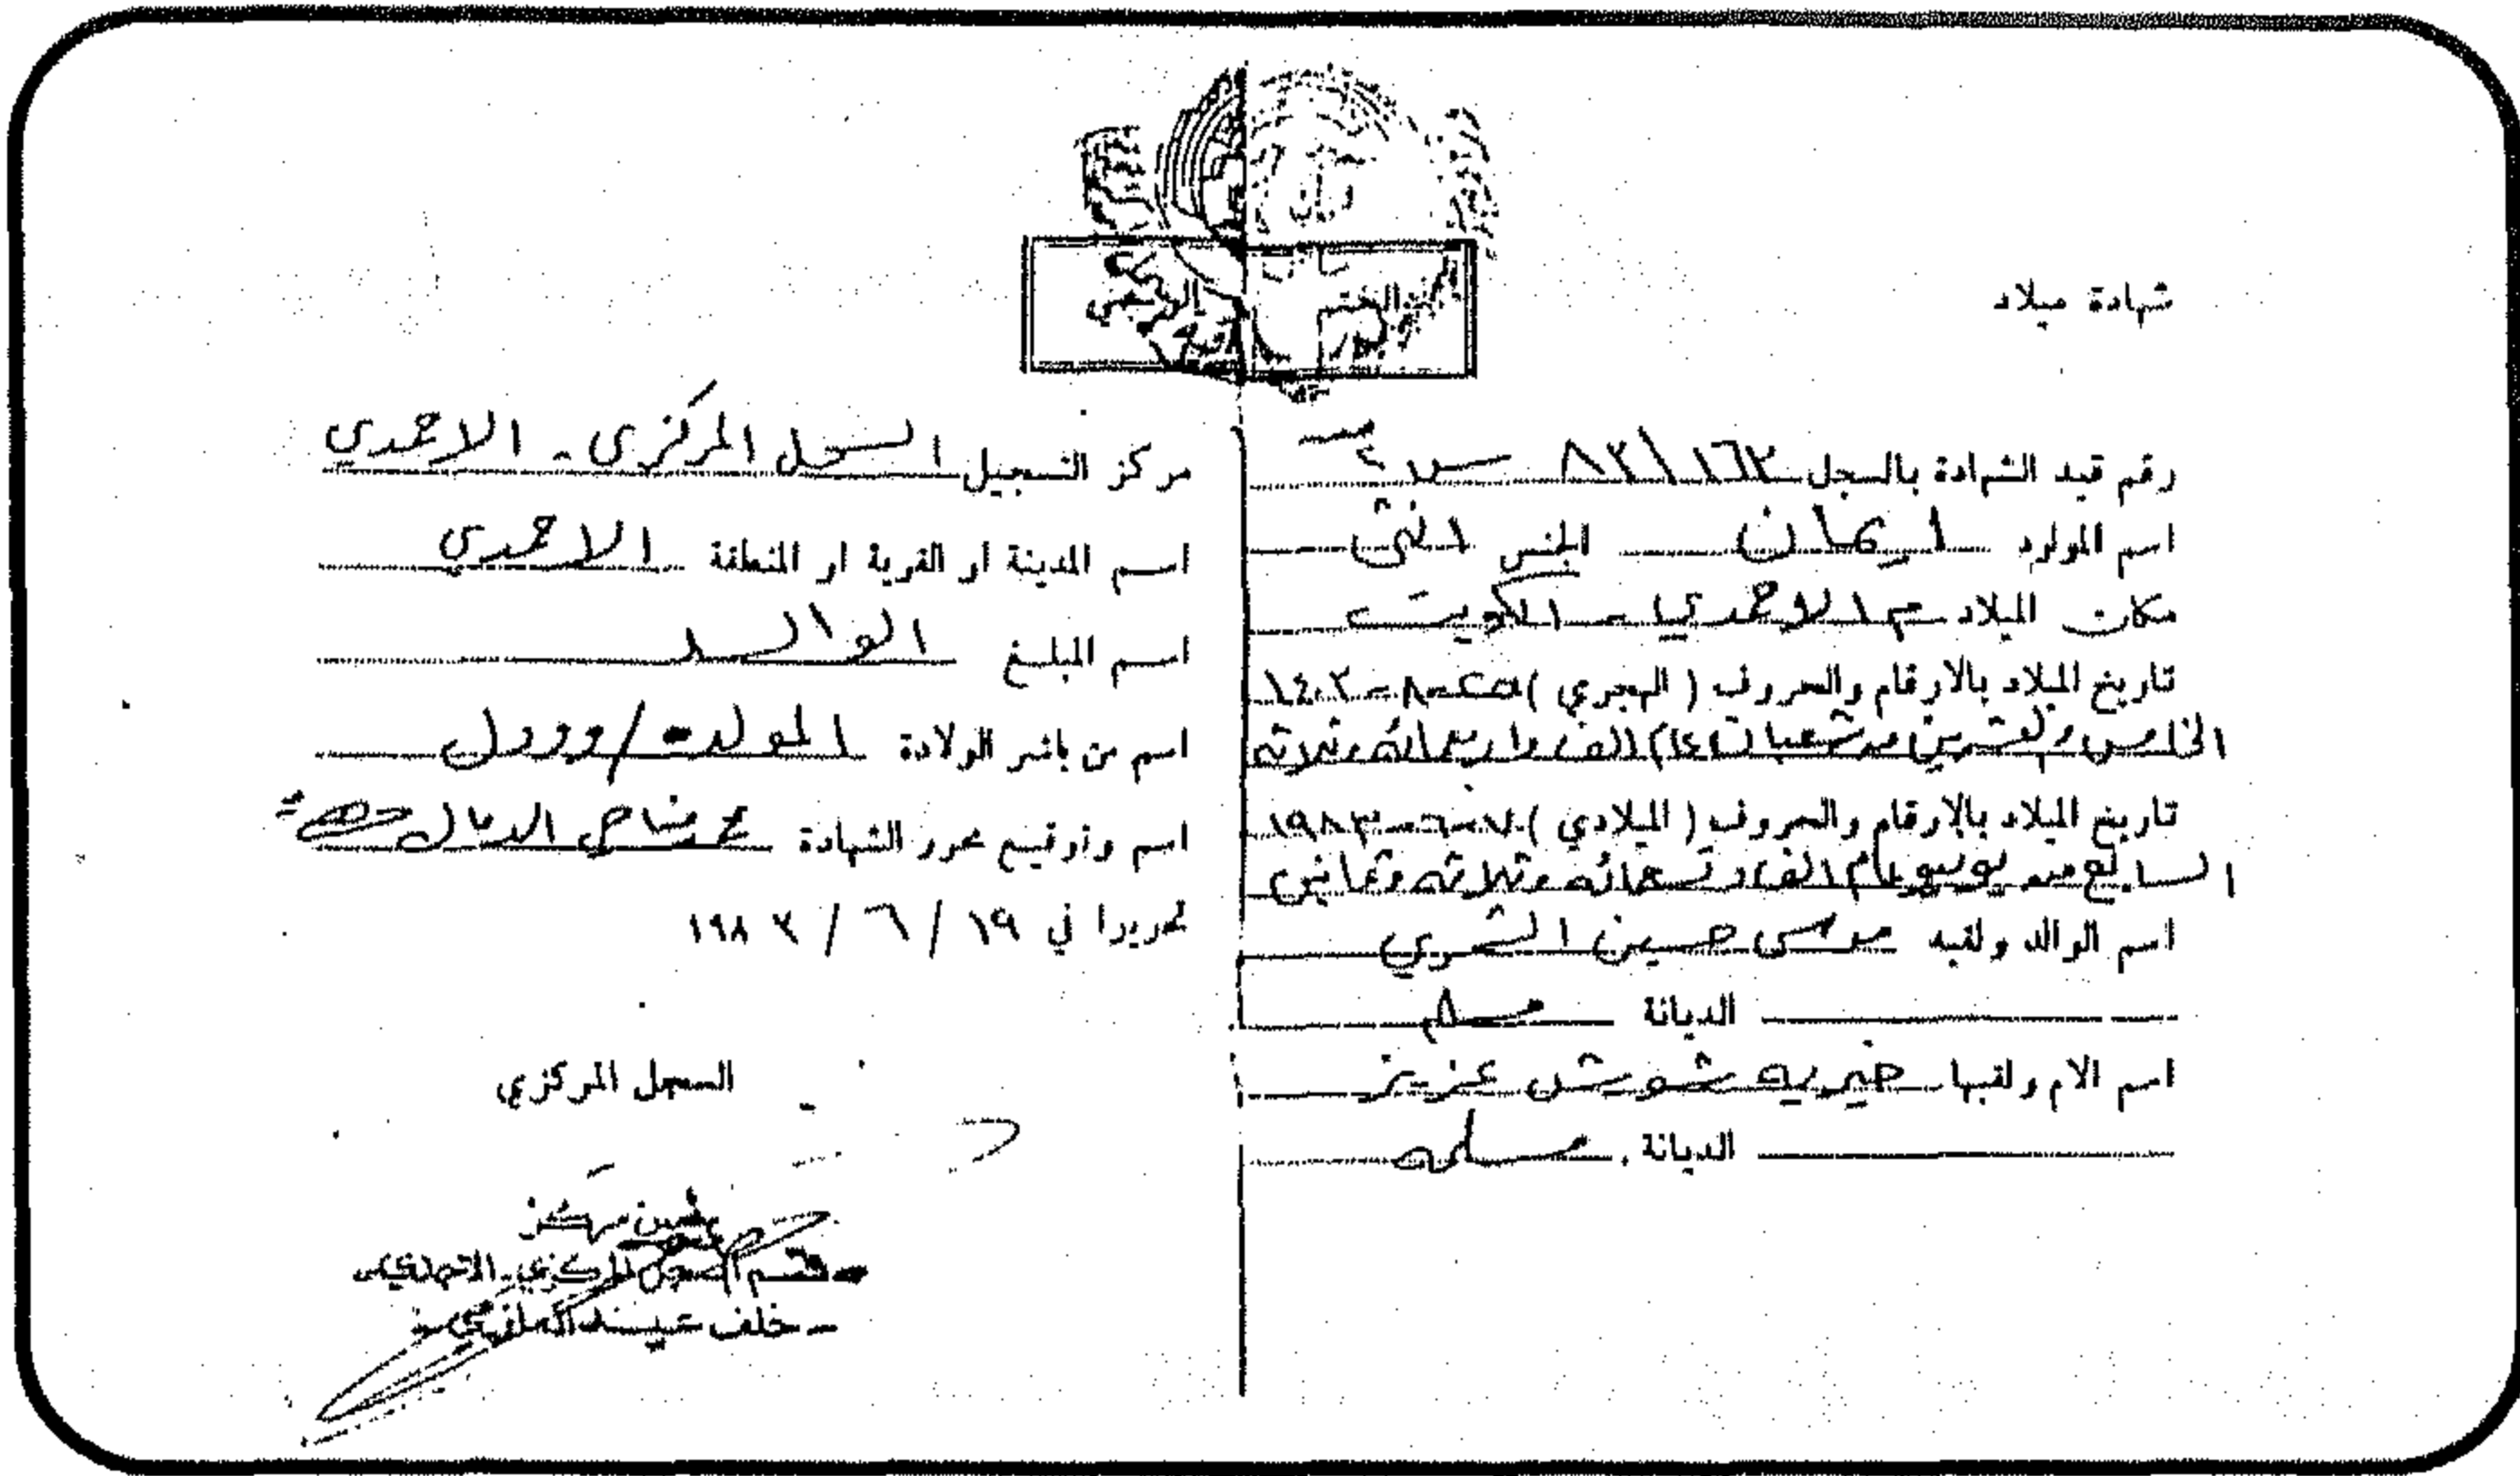 شهادة ميلاد
الختم الرسمي
رقم قيد الشهادة بالسجل ٨٣/١٦٢
اسم المولود ايمان الجنس انثى
مكان الميلاد م الاحمدي - الكويت
تاريخ الميلاد بالارقام والحروف (الهجري) ٢٥-٨-١٤٠٣
الخامس والعشرين من شعبان عام الف واربعمائه وثلاثه
تاريخ الميلاد بالارقام والحروف (الميلادي) ٧-٦-١٩٨٣
السابع من يونيو عام الف وتسعمائه وثلاثه وثمانين
اسم الوالد ولقبه موسى حسين الشمري
الديانة مسلم
اسم الام ولقبها خيريه شويش عزيز
الديانة مسلمه
مركز التسجيل السجل المركزى - الاحمدي
اسم المدينة او القرية او المنطقة الاحمدي
اسم المبلغ الوالد
اسم من باشر الولادة المولدة /
اسم وتوقيع محرر الشهادة محمد
تحريرا في ١٩ / ٦ / ١٩٨٣
السجل المركزي
قسم السجل المركزي
خلف